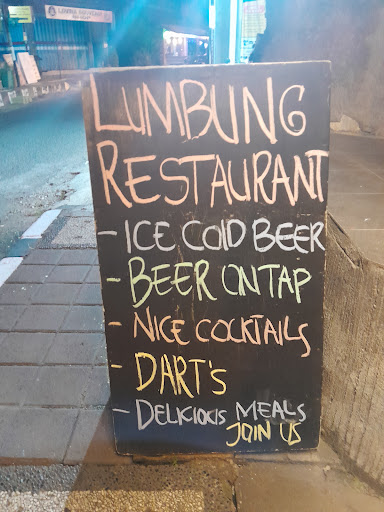 LUMBUNG
RESTAURANT
- ICE COLD BEER
- BEER ON TAP
- NICE COCKTAILS
- DART'S
- DELICIOUS MEALS
JOIN US